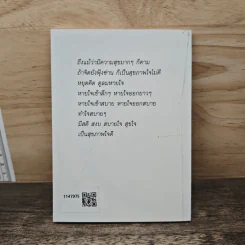 ถึงแม้ว่ามีความสุขมากๆ ก็ตาม
ถ้าจิตยังฟุ้งซ่าน ก็เป็นสุขภาพใจไม่ดี
หยุดคิด ดูลมหายใจ
หายใจเข้าลึกๆ หายใจออกยาวๆ
หายใจเข้าสบาย หายใจออกสบาย
ทำใจสบายๆ
มีสติ สงบ สบายใจ สุขใจ
เป็นสุขภาพใจดี